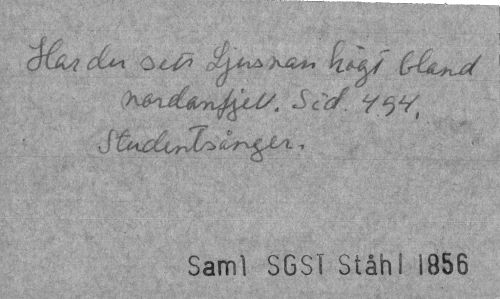 Har du sett Ljusnan högt bland
nordanfjell. Sid. 494.
Studentsånger.
Saml SGST Ståhl 1856